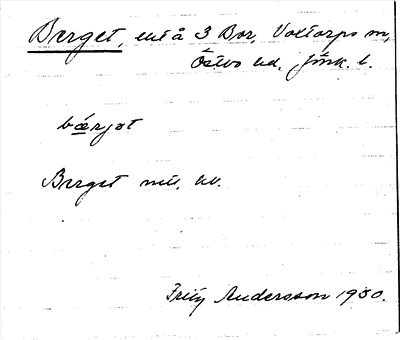 Berget, ent å 3 Bor, Voxtorps sn,
Östbo hd. Jönk. l.
bærjət
Berget mtl. kv.
Fritz Andersson 1930.